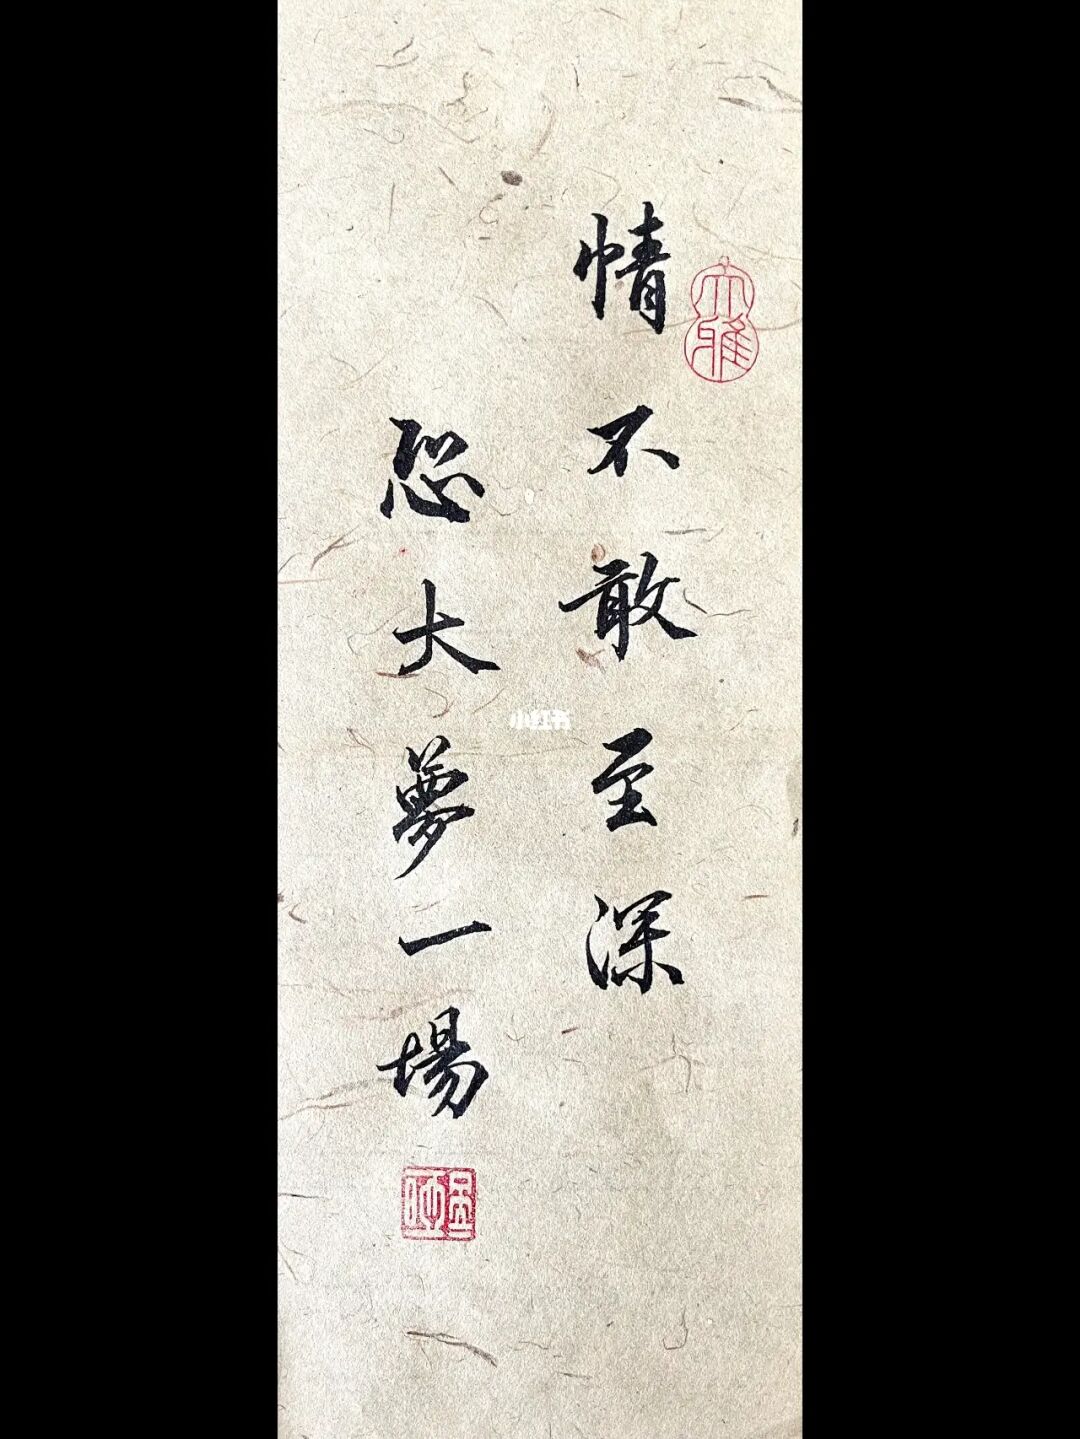 情不敢至深
恐大夢一場
大雅
小红书